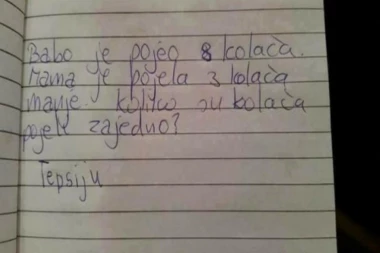 Babo je pojeo 8 kolača.
Mama je pojela 3 kolača
manje. koliko su kolača
pojeli zajedno?
Tepsiju